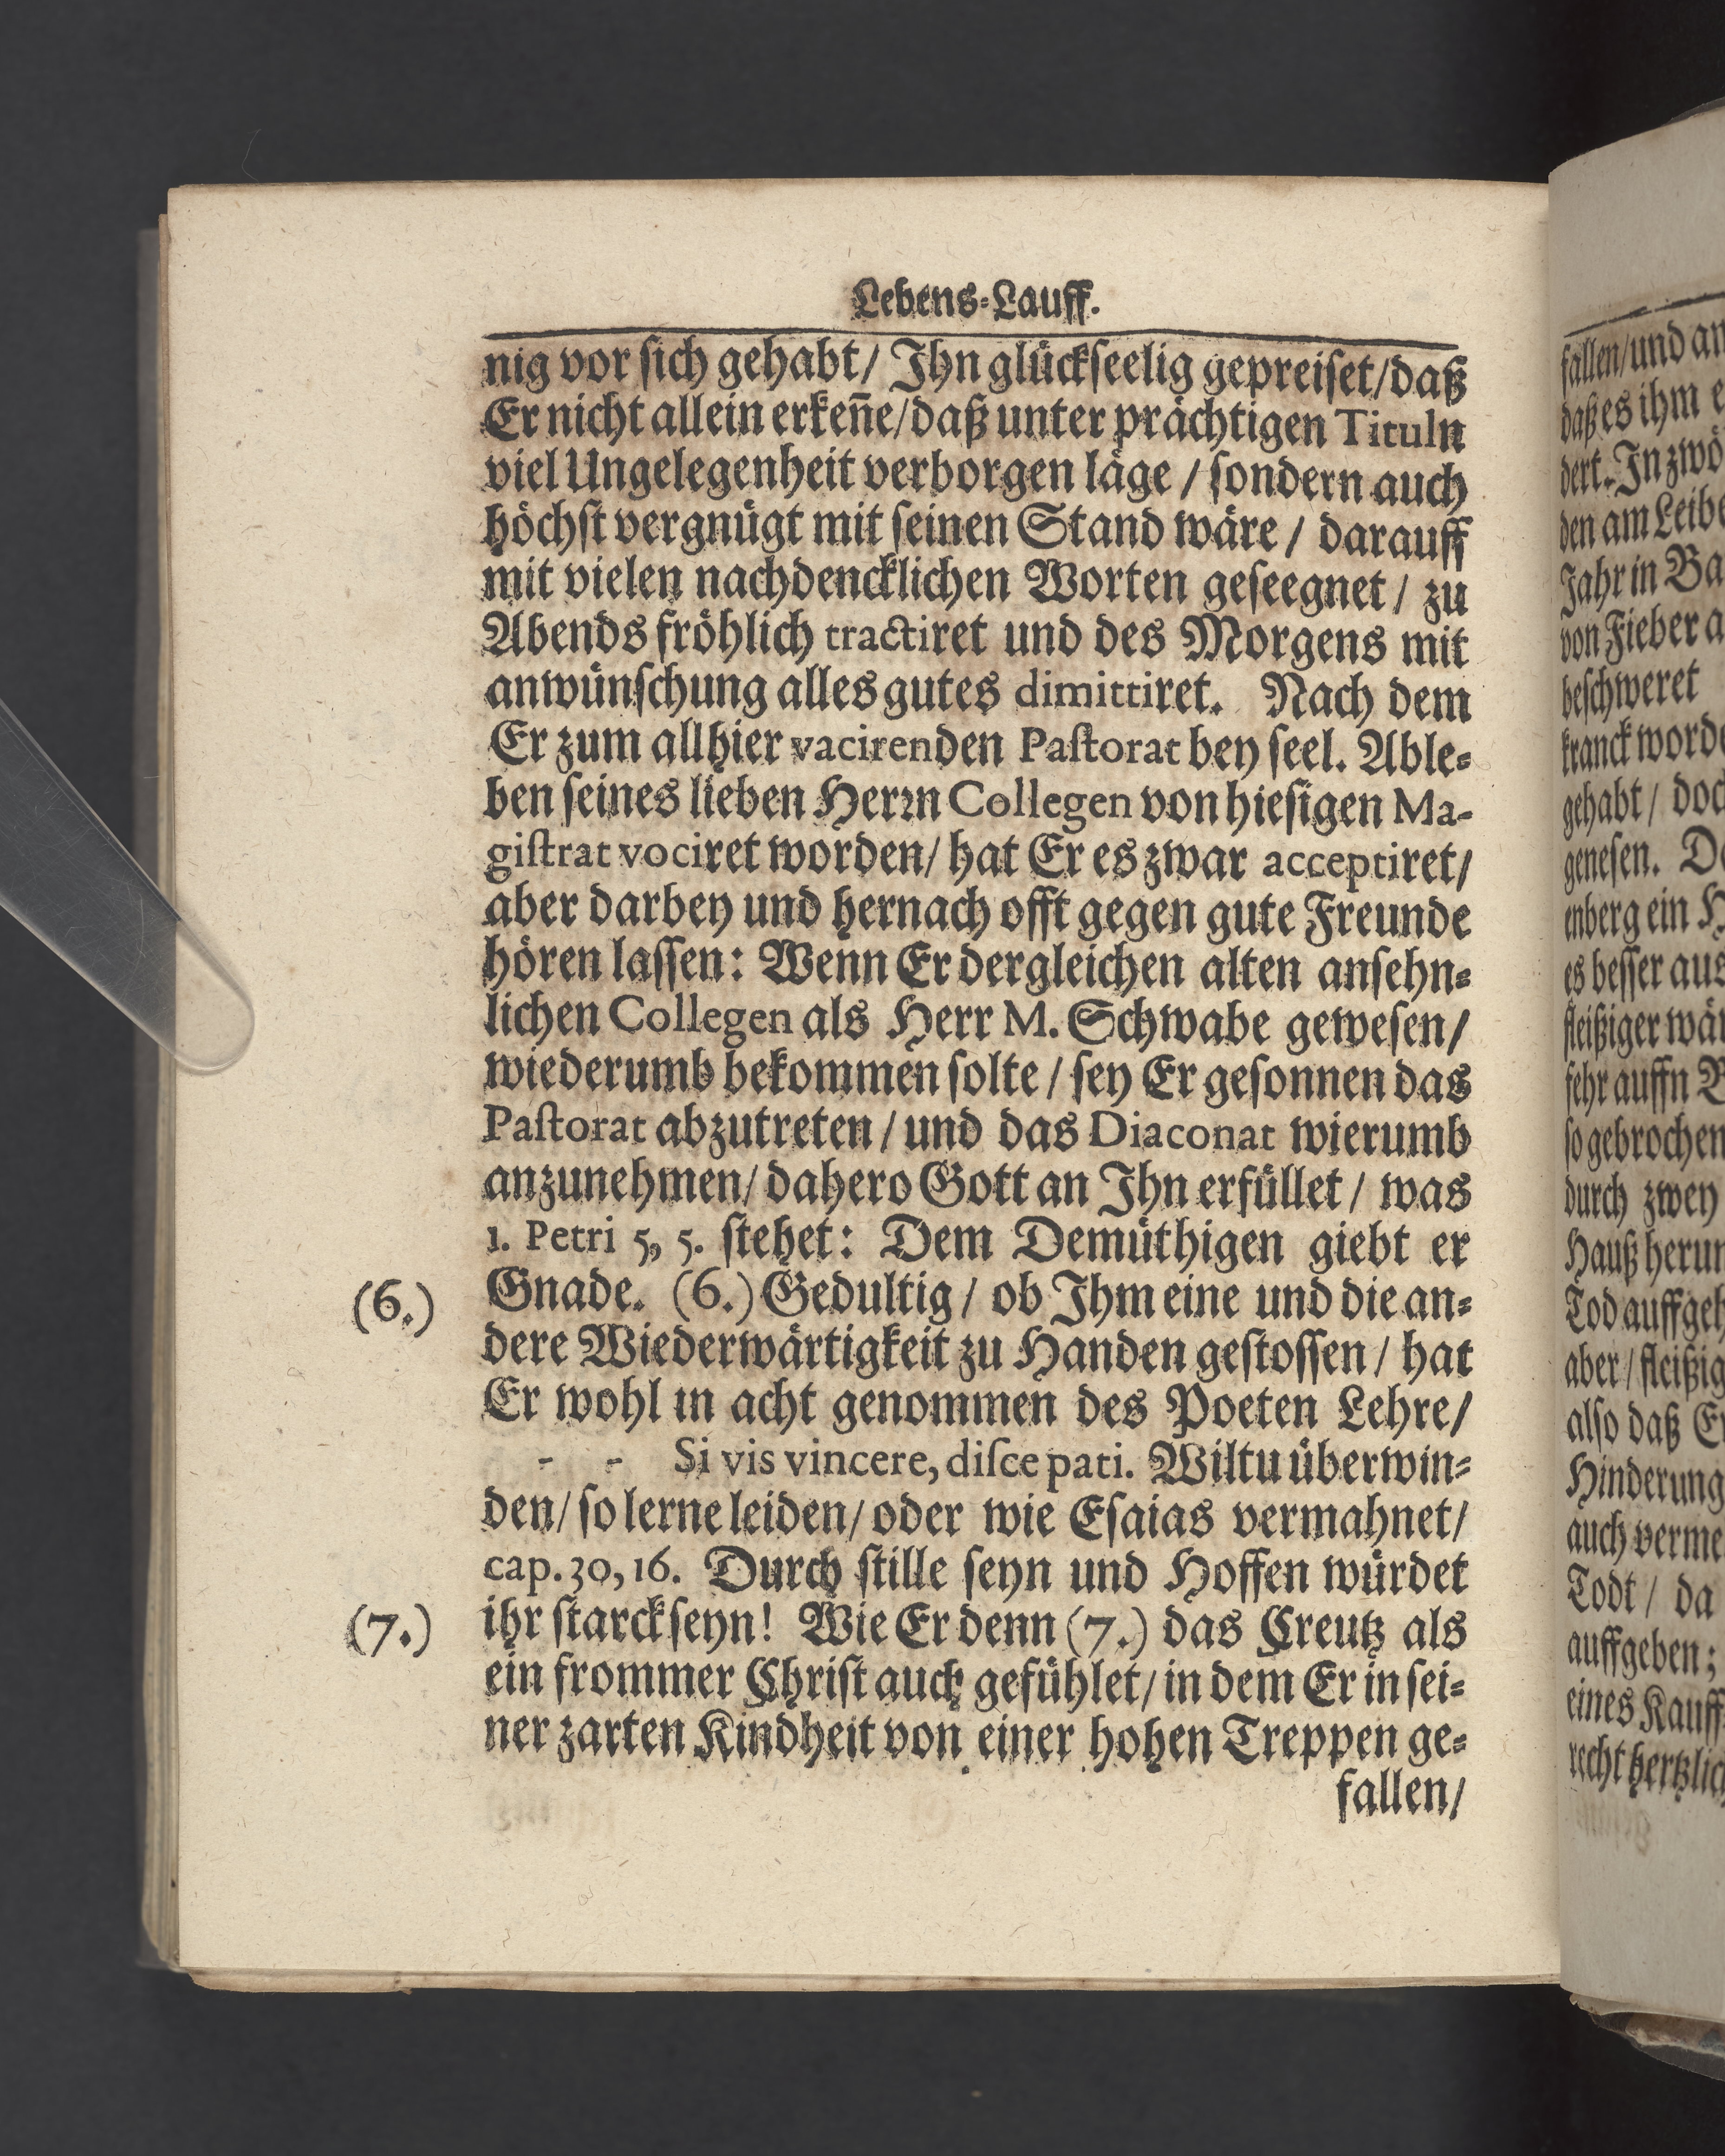 Lebens-Lauff.
nig vor sich gehabt/ Ihn glückseelig gepreiset/daß
Er nicht allein erkeñe/daß unter prächtigen Tituln
viel Ungelegenheit verborgen läge / sondern auch
höchst vergnügt mit seinen Stand wäre / darauff
mit vielen nachdencklichen Worten geseegnet / zu
Abends fröhlich tractiret und des Morgens mit
anwünschung alles gutes dimittiret. Nach dem
Er zum allhier vacirenden Pastorat bey seel. Able-
ben seines lieben Herrn Collegen von hiesigen Ma-
gistrat vociret worden/ hat Er es zwar acceptiret/
aber darbey und hernach offt gegen gute Freunde
hören lassen: Wenn Er dergleichen alten ansehn-
lichen Collegen als Herr M. Schwabe gewesen/
wiederumb bekommen solte / sey Er gesonnen das
Pastorat abzutreten / und das Diaconat wierumb
anzunehmen/ dahero Gott an Ihn erfüllet / was
1. Petri 5, 5. stehet: Dem Demüthigen giebt er
(6.) Gnade. (6.) Gedultig / ob Ihm eine und die an-
dere Wiederwärtigkeit zu Handen gestossen / hat
Er wohl in acht genommen des Poeten Lehre/
- - Si vis vincere, disce pati. Wiltu überwin-
den/ so lerne leiden/ oder wie Esaias vermahnet/
cap. 30, 16. Durch stille seyn und Hoffen würdet
(7.) ihr starck seyn! Wie Er denn (7.) das Creutz als
ein frommer Christ auch gefühlet/ in dem Er in sei-
ner zarten Kindheit von einer hohen Treppen ge-
fallen/
fallen/und an
daß es ihm
dert. In zwö
den am Leibe
Jahr in Ba
von Fieber a
beschweret
kranck worde
gehabt / doc
genesen. D
enberg ein H
es besser aus
fleißiger wär
sehr auffn B
so gebrochen
durch zwey
Hauß herum
Tod auffgeh
aber / fleißig
also daß Er
Hinderung
auch verme
Todt / da
auffgeben;
eines Kauff
recht hertzlich